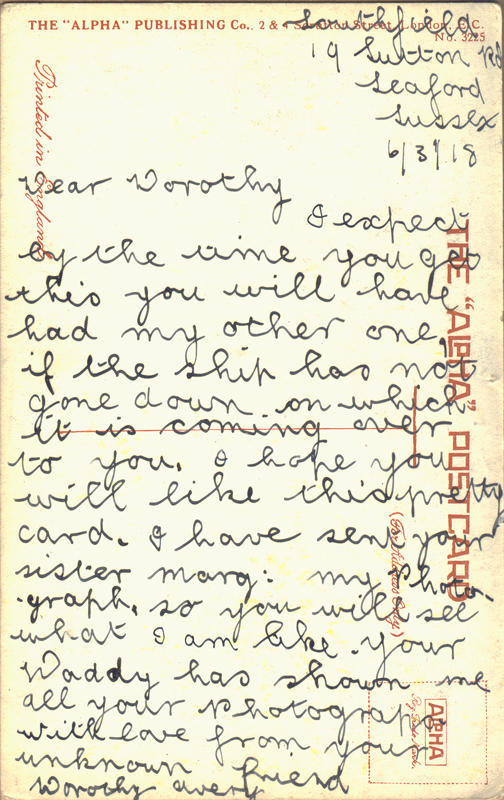 THE "ALPHA" PUBLISHING Co., 2 & London, E.C.
No. 3225
Southfield
19 Sutton Rd
Seaford
Sussex
6/3/18
Printed in England
Dear Dorothy
I expect
by the time you get
this you will have
had my other one,
if the ship has not
gone down on which
it is coming over
to you. I hope you
will like this pretty
card. I have sent your
sister marg: my photo-
-graph, so you will see
what I am like. your
Daddy has shown me
all your photographs
with love from your
unknown friend
Dorothy avery
THE "ALPHA" POSTCARD
(For Address Only)
ALPHA